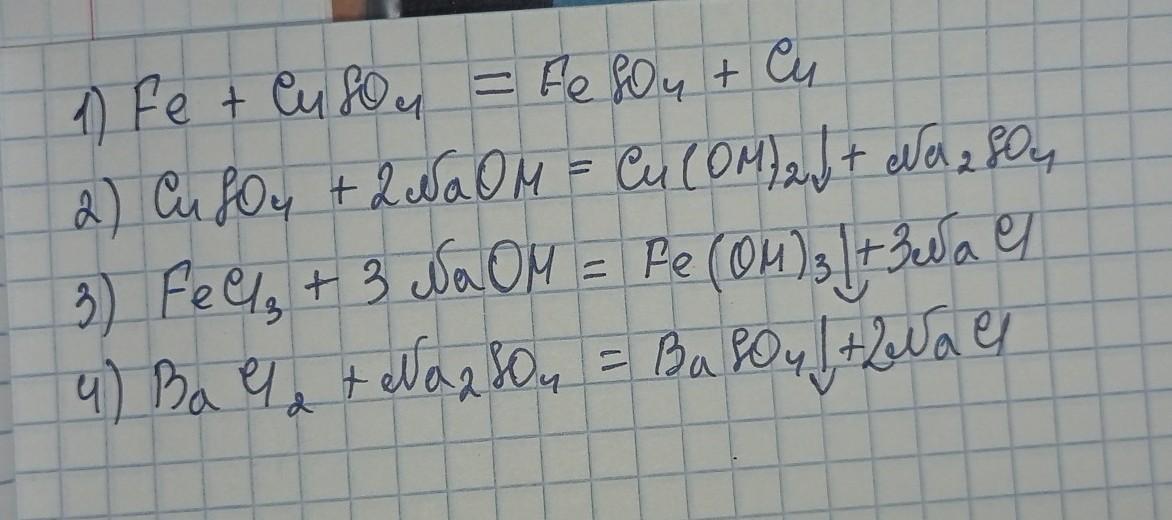 1) Fe + CuSO₄ = FeSO₄ + Cu
2) CuSO₄ + 2NaOH = Cu(OH)₂↓ + Na₂SO₄
3) FeCl₃ + 3NaOH = Fe(OH)₃↓ + 3NaCl
4) BaCl₂ + Na₂SO₄ = BaSO₄↓ + 2NaCl